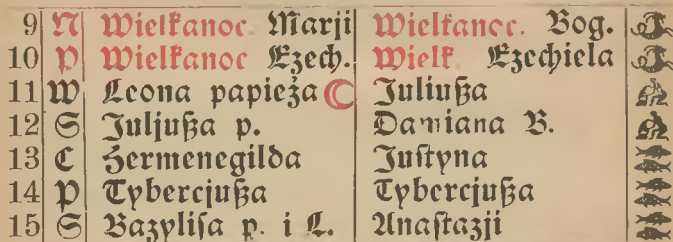 9 N Wielkanoc Marji Wielkanoc. Bog.
10 P Wielkanoc Ezech. Wielk Ezechiela
11 W Leona papieża Juliuſza
12 S Juljuſza p. Damiana B.
13 C Hermenegilda Juſtyna
14 P Tyberciuſza Tyberciuſza
15 S Bazyliſa p. i L. Anaſtazji